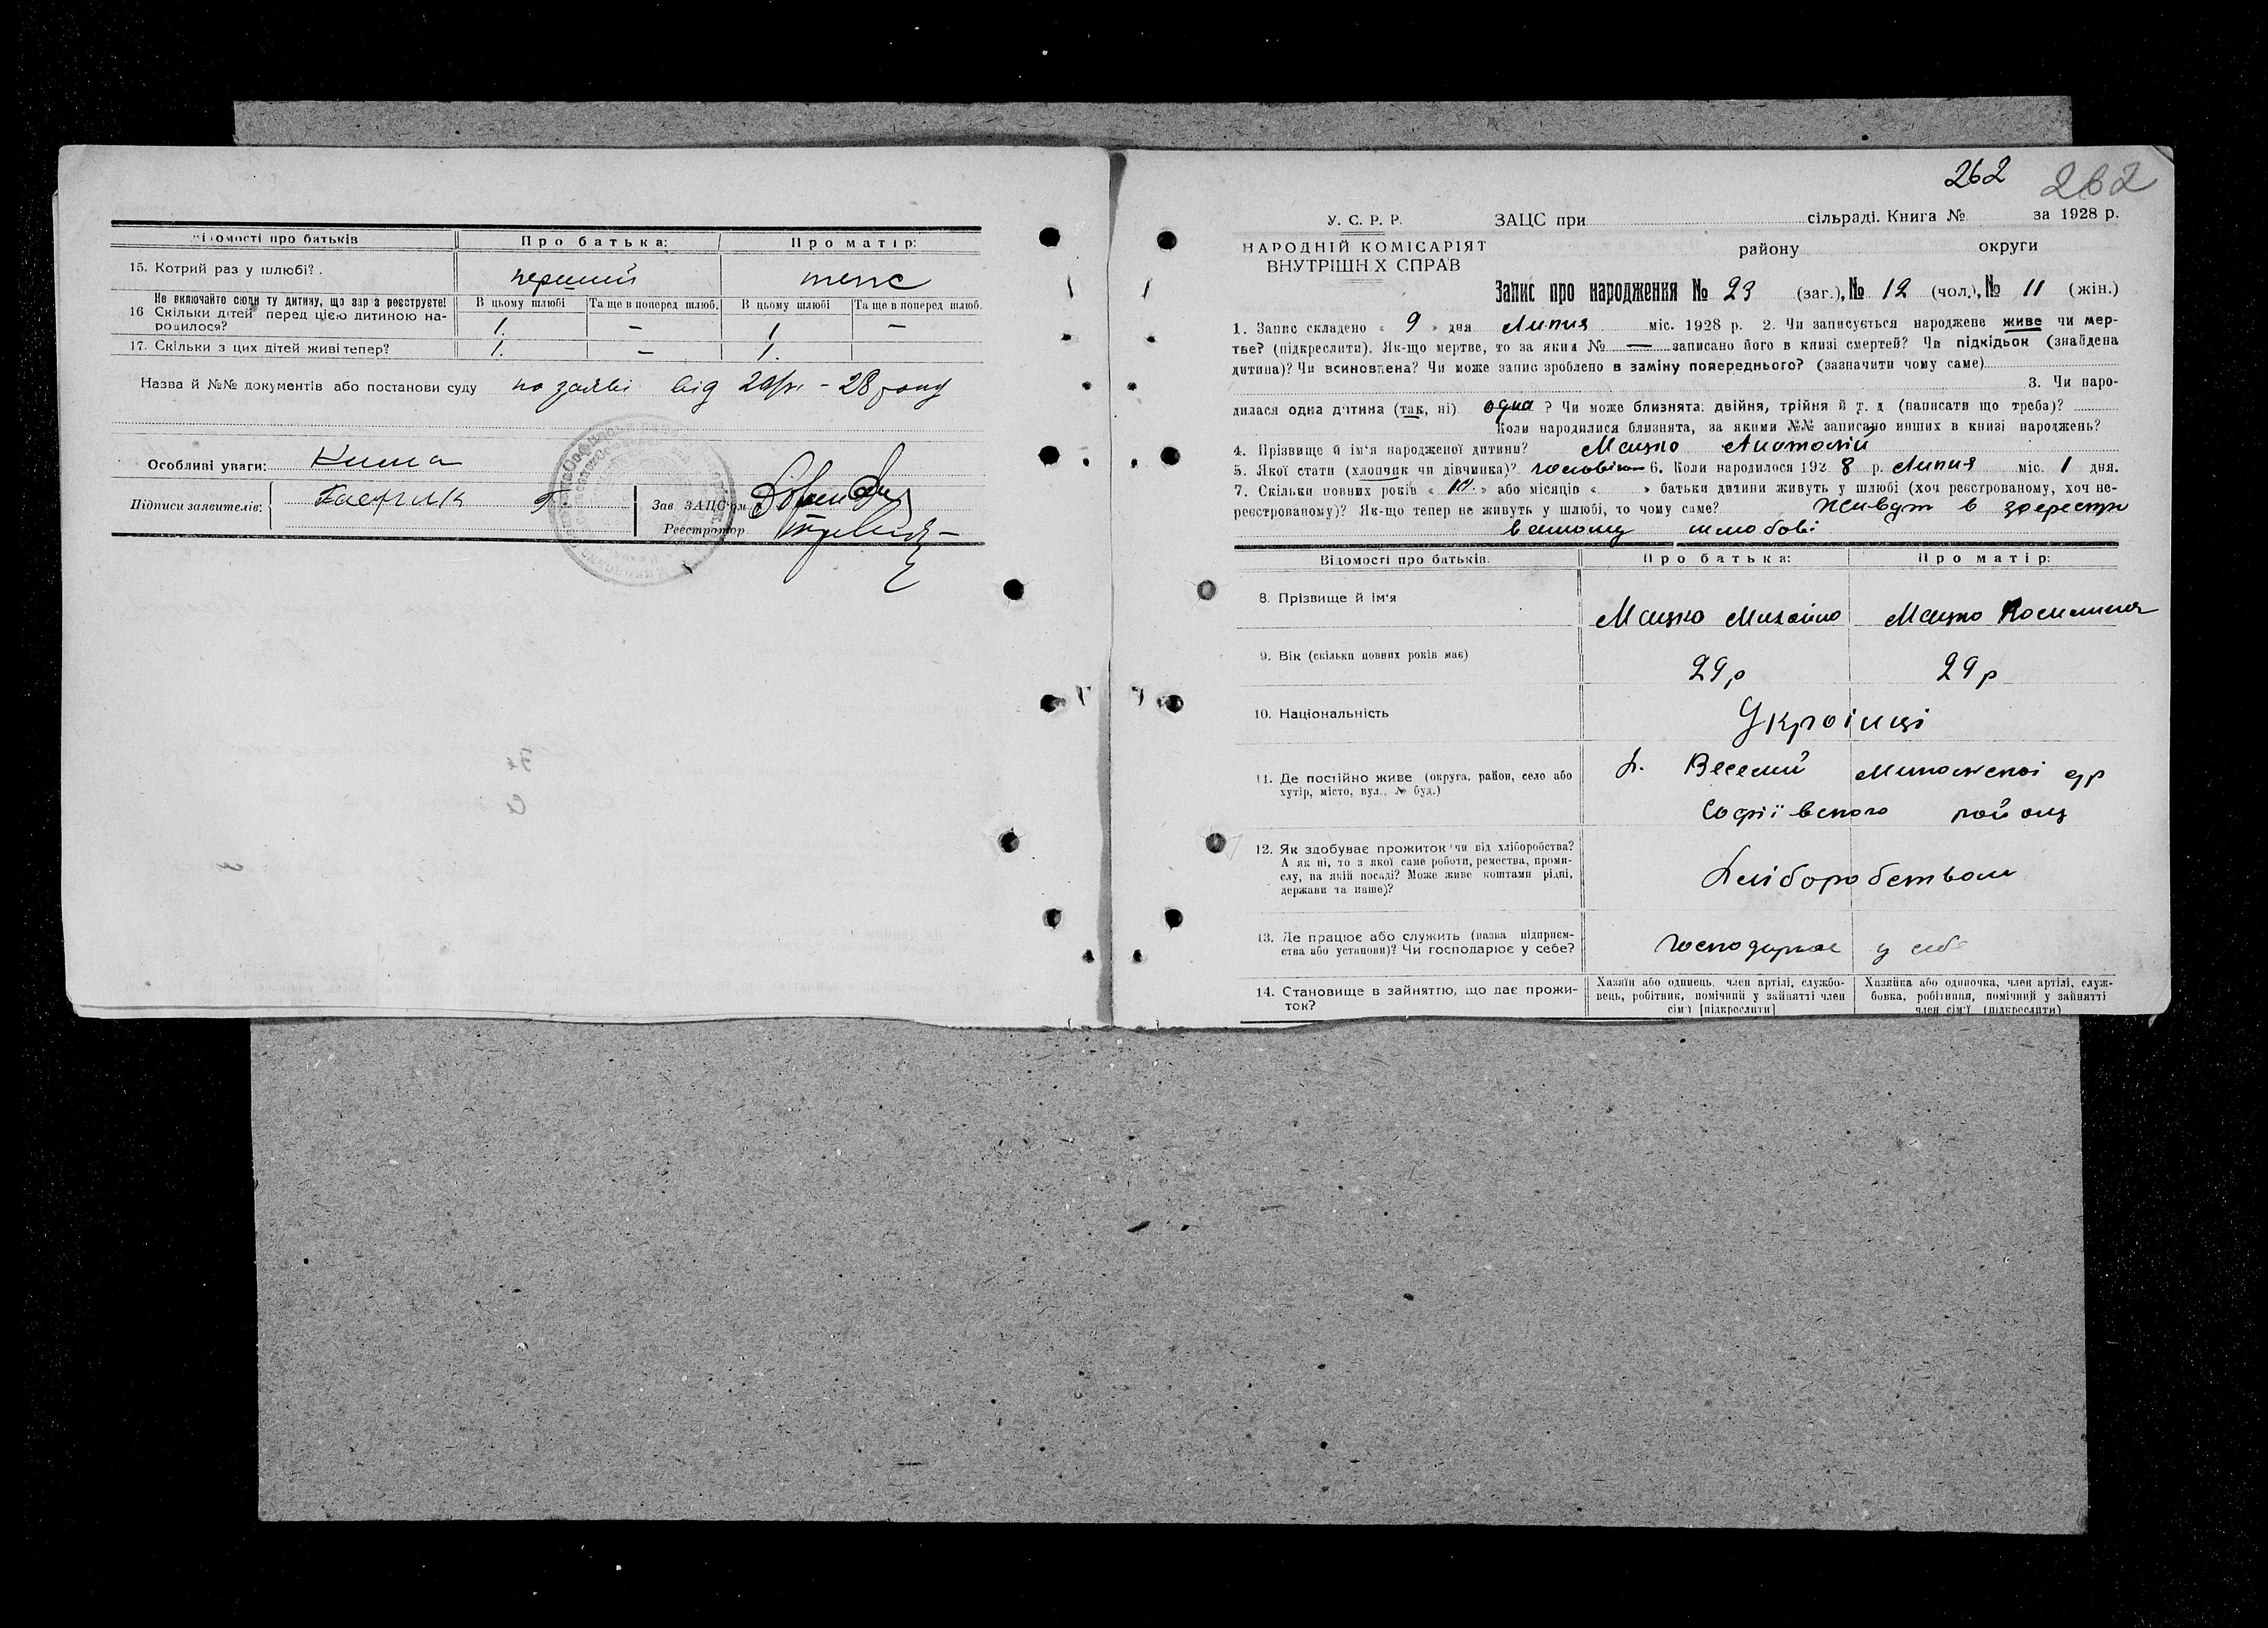 Відомості про батьків Про батька: Про матір:
15. Котрий раз у шлюбі? перший теж
Не включайте сюди ту дитину, що зараз реєструєте! В цьому шлюбі Та ще в поперед шлюб. В цьому шлюбі Та ще в поперед шлюб.
16 Скільки дітей перед цією дитиною на-
родилося? 1. — 1 —
17. Скільки з цих дітей живі тепер? 1. — 1.
Назва й №№ документів або постанови суду по заяві від - 28 року
Особливі уваги:
Підписи заявителів:
Зав ЗАЦС'ом
Реєстратор
262 262
У. С. Р. Р. ЗАЦС при сільраді. Книга № за 1928 р.
НАРОДНІЙ КОМІСАРІЯТ району округи
ВНУТРІШНІХ СПРАВ
Запис про народження № 23 (заг.), № 12 (чол.), № 11 (жін.)
1. Запис складено « 9 » дня Липня міс. 1928 р. 2. Чи записується народжене живе чи мер-
тве? (підкреслити). Як-що мертве, то за яким № — записано його в книзі смертей? Чи підкідьок (знайдена
дитина)? Чи всиновлена? Чи може запис зроблено в заміну попереднього? (зазначити чому саме)
3. Чи наро-
дилася одна дитина (так, ні) одна ? Чи може близнята: двійня, трійня й т. д (написати що треба)?
Коли народилися близнята, за якими №№ записано инших в книзі народжень?
4. Прізвище й ім'я народженої дитини? Мацко Анатолій
5. Якої стати (хлопчик чи дівчинка)? 6. Коли народилося 192 8 р. Липня міс. 1 дня.
7. Скільки повних років « 10 » або місяців « » батьки дитини живуть у шлюбі (хоч реєстрованому, хоч не-
реєстрованому)? Як-що тепер не живуть у шлюбі, то чому саме? Живут в зареєстро
ваному шлюбові
Відомості про батьків. Про батька: Про матір:
8. Прізвище й ім'я Мацко Михайло Мацко
9. Вік (скільки повних років має) 29 р 29 р
10. Національність Українці
11. Де постійно живе (округа, район, село або
хутір, місто, вул., № буд.) х. Веселий
Софіївського району
12. Як здобуває прожиток чи від хліборобства?
А як ні, то з якої саме роботи, ремества, проми-
слу, на якій посаді? Може живе коштами рідні,
держави та инше)? Хліборобством
13. Де працює або служить (назва підприєм-
ства або установи)? Чи господарює у себе? господарює у себе
14. Становище в зайняттю, що дає прожи-
ток?
Хазяїн або одинець, член артілі, службо-
вець, робітник, помічний у зайнятті член
сім'ї [підкреслити]
Хазяйка або одиночка, член артілі, служ-
бовка, робітниця, помічний у зайнятті
член сім'ї (підкреслити)